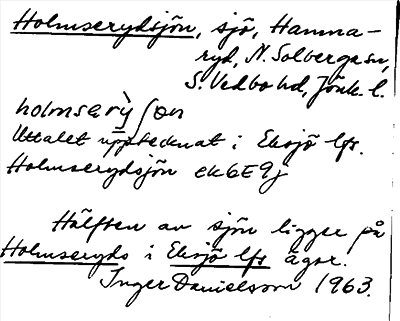 Holmserydsjön, sjö, Hamma-
ryd, N. Solberga sn,
S. Vedbo hd, Jönk. l.
holmserỳ ʃøn
Uttalet upptecknat i Eksjö lfs.
Holmserydsjön ek6E9j
Hälften av sjön ligger på
Holmseryds i Eksjö lfs ägor.
Inger Danielsson 1963.